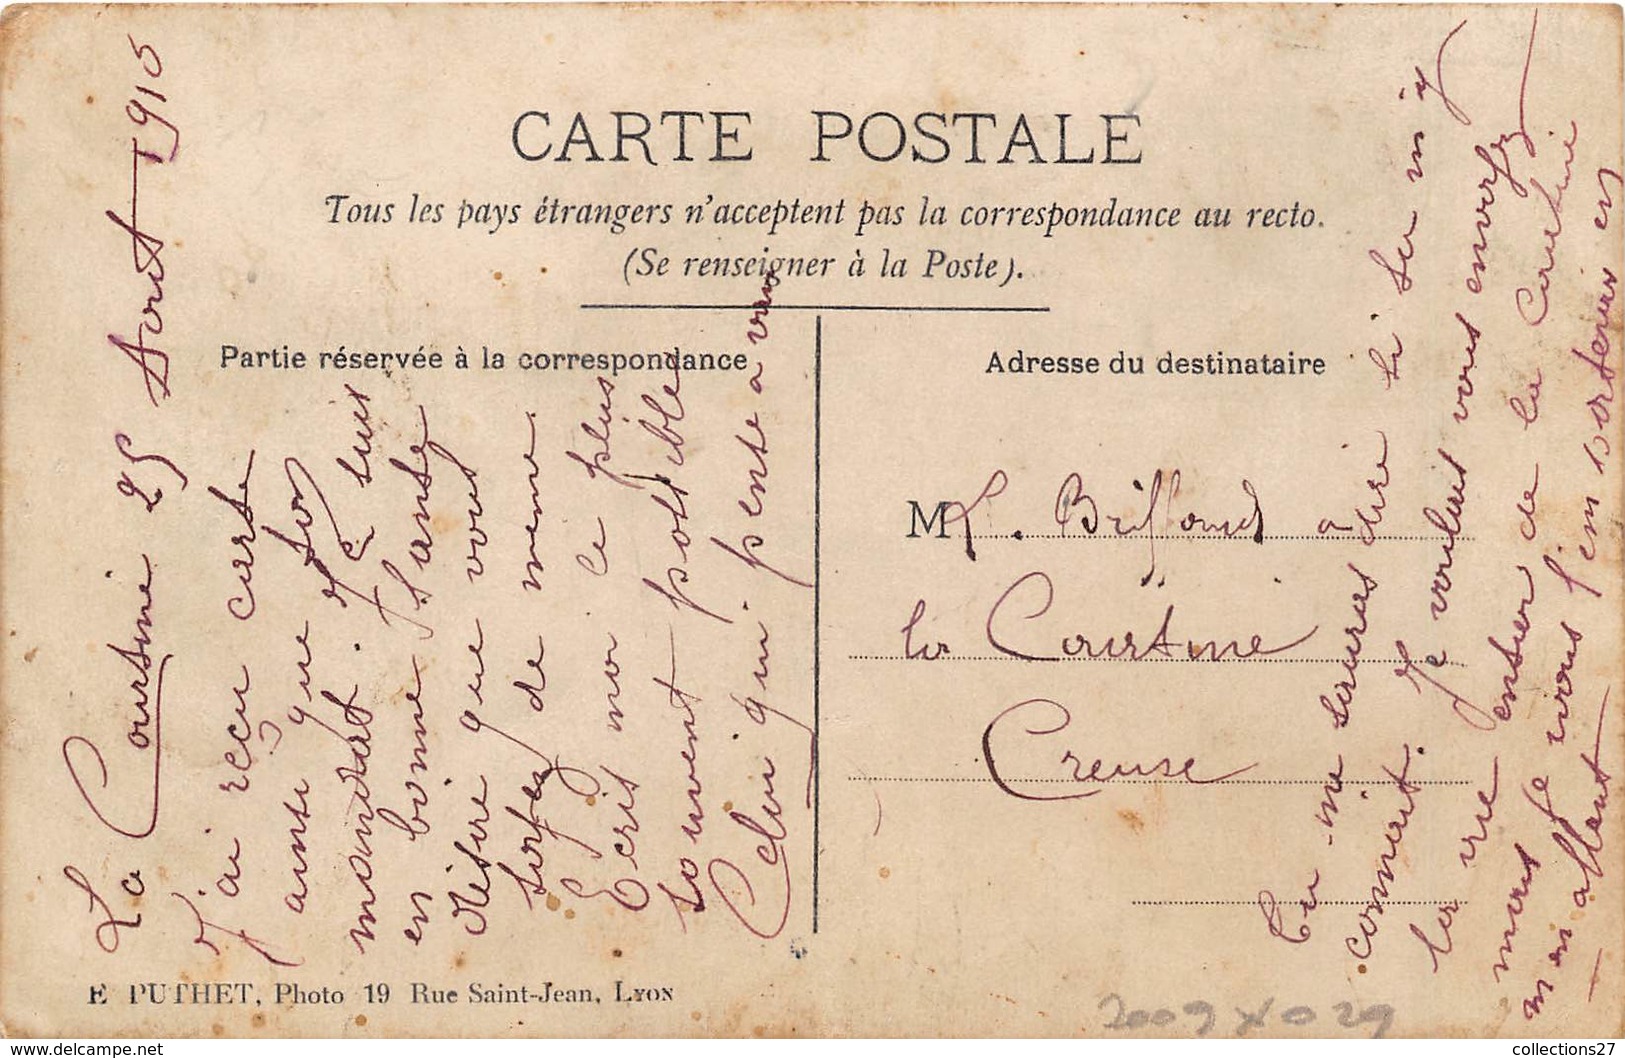 CARTE POSTALE
Tous les pays étrangers n'acceptent pas la correspondance au recto.
(Se renseigner à la Poste).
Partie réservée à la correspondance
Adresse du destinataire
La Courtine 25 Aout 1915
J'ai reçu carte
ainsi que ton
mandat. Je suis
en bonne sante
désire que vous
soyez de meme.
Ecris moi le plus
souvent possible
Celui qui pense a vous
M L. Briffoud a
la Courtine
Creuse
Tu me sauras dire si su m'y
connait. Je voulais vous envoyez
la vue entier de la Courtine
mais je vous l'em porterais en
m en allant
E PUTHET, Photo 19 Rue Saint-Jean, LYON
2009 X 029
collections27